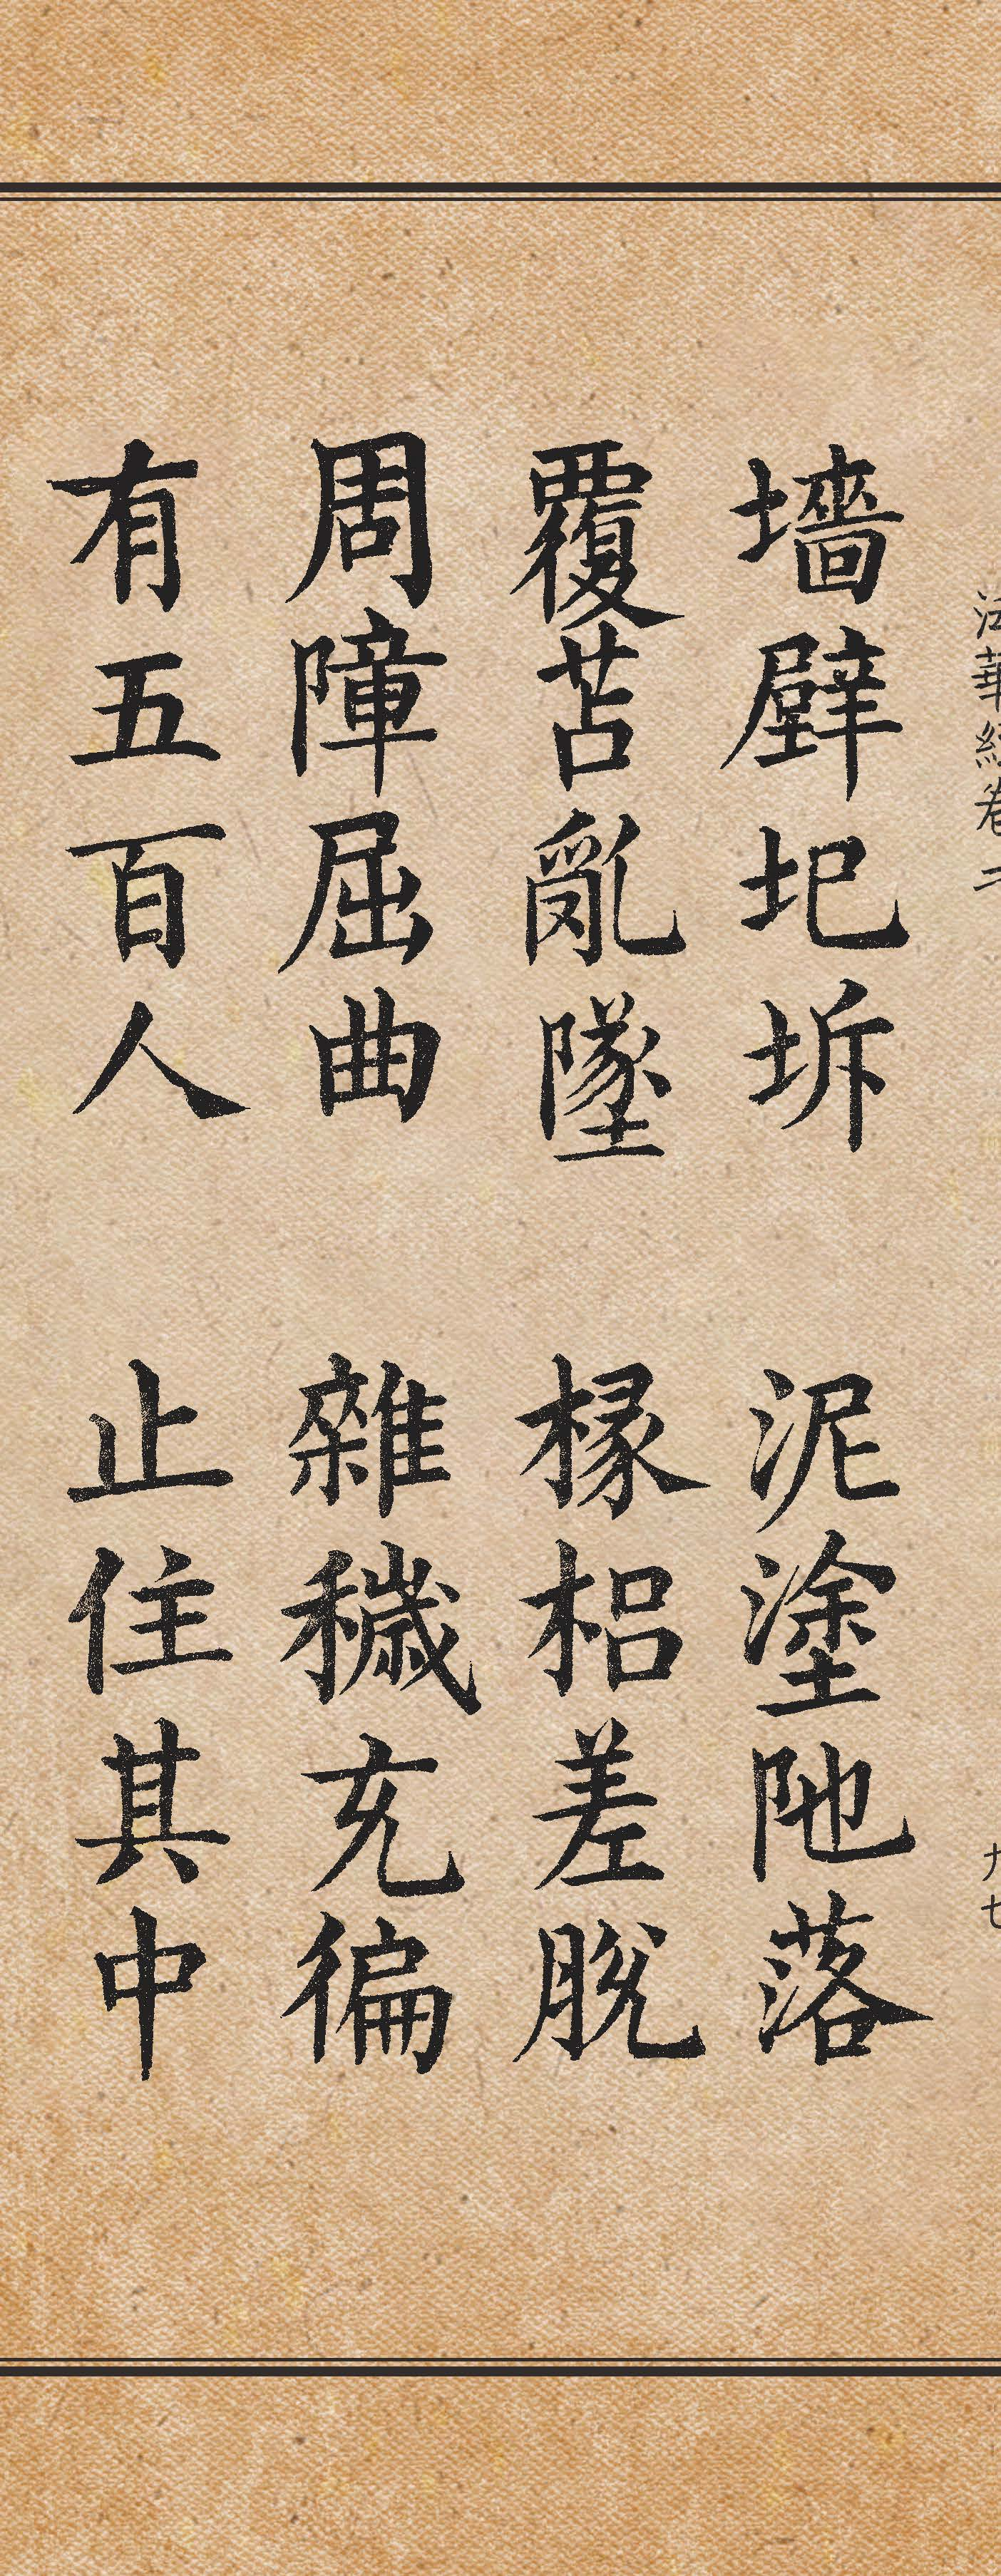 法華經卷二
九七
墻壁圯坼　泥塗陁落
覆苫亂墜　椽梠差脫
周障屈曲　雜穢充徧
有五百人　止住其中